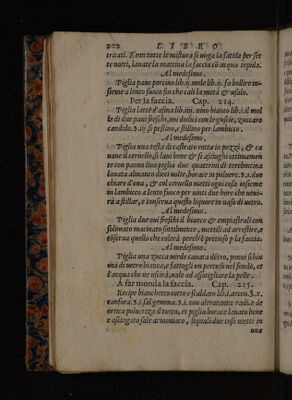 202 LIBRO
tritati. E con tutte le mistura si unga la faccia per set
te notti, lauate la mattina la faccia cō acqua tepida.
Al medesimo.
Piglia pane porcino lib. mele lib. fa bollire in-
sieme a lento fuoco fin che cali la metà & usalo.
Per la faccia. Cap. 214.
Piglia latte d'asina lib. uino bianco lib. i. mol
le di due pani freschi, oui dolci con le guscie, zuccaro
candido. pestino, e stillino per lambicco.
Al medesimo.
Piglia una testa di castrato rotta in pezzi, & ca
uane il ceruello, si laui bene & si asciughi ottimamen
te con panno lino piglia due quatrini di terebentina
lauata almanco dieci uolte, borace in poluere. due
chiare d'oua, & col ceruello metti ogni cosa insieme
in lambicco a lento fuoco per uinti due hore che ueni-
rà a stillar, e conserua questo liquore in uaso di uetro.
Al medesimo.
Piglia due oui freschi il bianco & empiastrali con
solimato macinato sottilmente, mettili ad arrostire, e
osserua quello che colerà perch'è pretioso p la faccia.
Al medesimo.
Piglia una zucca uerde cauata dētro, poni
ma di uetro bianco, e fattogli un pertuso nel fondo, et
l'acqua che ne uscirà, uale ad assutigliare la pelle.
A far monda la faccia. Cap. 215.
Recipe bianchetto cotto e scaldato lib. i. arcen.
canfora. sal gemma. con altrotante radice de
ortica polueriza il tutto, et piglia borace leuato bene
e asciugato sale armoniaco, liquali due cose metti in
una